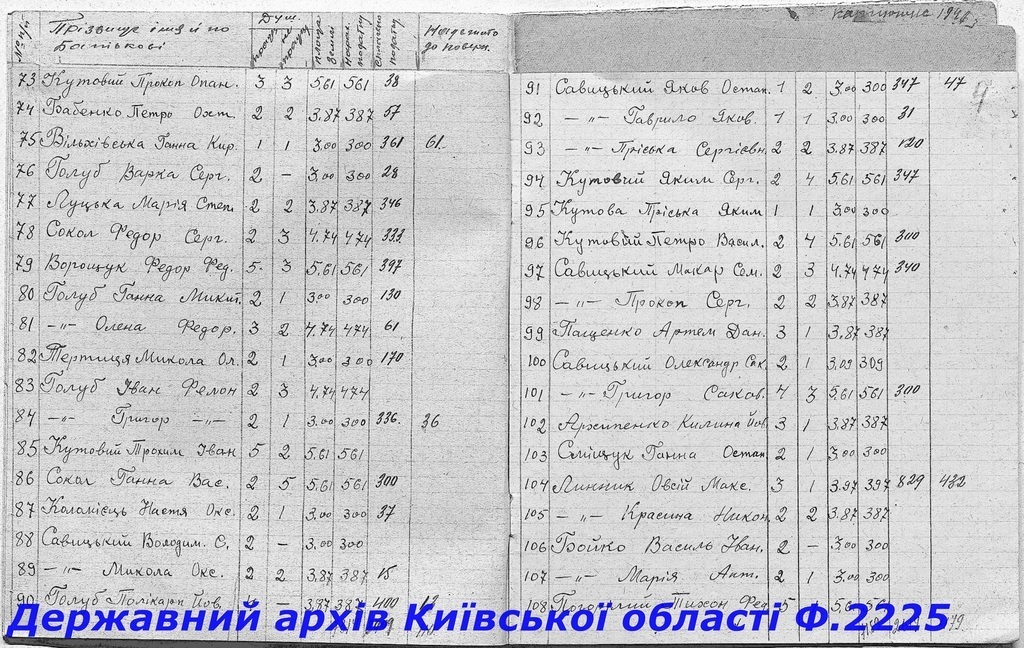 № п/п Прізвище імя й по батькові Душ. площа землі Нарах. податку податку до поверн.
73 Кутовий Прокоп Опан. 3 3 5.61 561 38
74 Бабенко Петро Охт. 2 2 3.87 387 57
75 Вільхівська Ганна Кир. 1 1 3.00 300 361 61.
76 Голуб Варка Серг. 2 – 3.00 300 28
77 Луцька Марія Степ. 2 2 3.87 387 346
78 Сокол Федор Серг. 2 3 4.74 474 333
79 Ворощук Федор Фед. 5. 3 5.61 561 397
80 Голуб Ганна Микит. 2 1 3.00 300 130
81 –„– Олена Федор. 3 2 4.74 474 61
82 Тертиця Микола Ол. 2 1 3.00 300 170
83 Голуб Іван Фелон 2 3 4.74 474
84 –„– Григор –„– 2 1 3.00 300 336. 36
85 Кутовий Трохим Іван 5 2 5.61 561
86 Сокол Ганна Вас. 2 5 5.61 561 300
87 Коломієць Настя Окс. 2 1 3.00 300 37
88 Савицький Володим. С. 2 – 3.00 300
89 –„– Микола Окс. 2 2 3.87 387 15
90 Голуб Полікарп Йов. 4 – 3.87 387 400 13
1946
91 Савицький Яков Остап. 1 2 3.00 300 347 47
92 –„– Гаврило Яков. 1 1 3.00 300 31
93 –„– Пріська Сергієвн. 2 2 3.87 387 120
94 Кутовий Яким Серг. 2 4 5.61 561 347
95 Кутова Пріська Яким 1 1 3.00 300
96 Кутовий Петро Васил. 2 4 5.61 561 300
97 Савицький Макар Сем. 2 3 4.74 474 340
98 –„– Прокоп Серг. 2 2 3.87 387
99 Пащенко Артем Дан. 3 1 3.87 387
100 Савицький Олександр Сак. 2 1 3.09 309
101 –„– Григор Саков. 4 3 5.61 561 300
102 Архипенко Килина Йов. 3 1 3.87 387
103 Сліщук Ганна Остап. 2 1 3.00 300
104 Линник Овсій Макс. 3 1 3.97 397 829 432
105 –„– Красина Никон. 2 2 3.87 387
106 Бойко Василь Іван. 2 – 3.00 300
107 –„– Марія Ант. 2 1 3.00 300
108 Погорілий Тихон Фед. 5 1 5.61 561
Державний архів Київської області Ф.2225